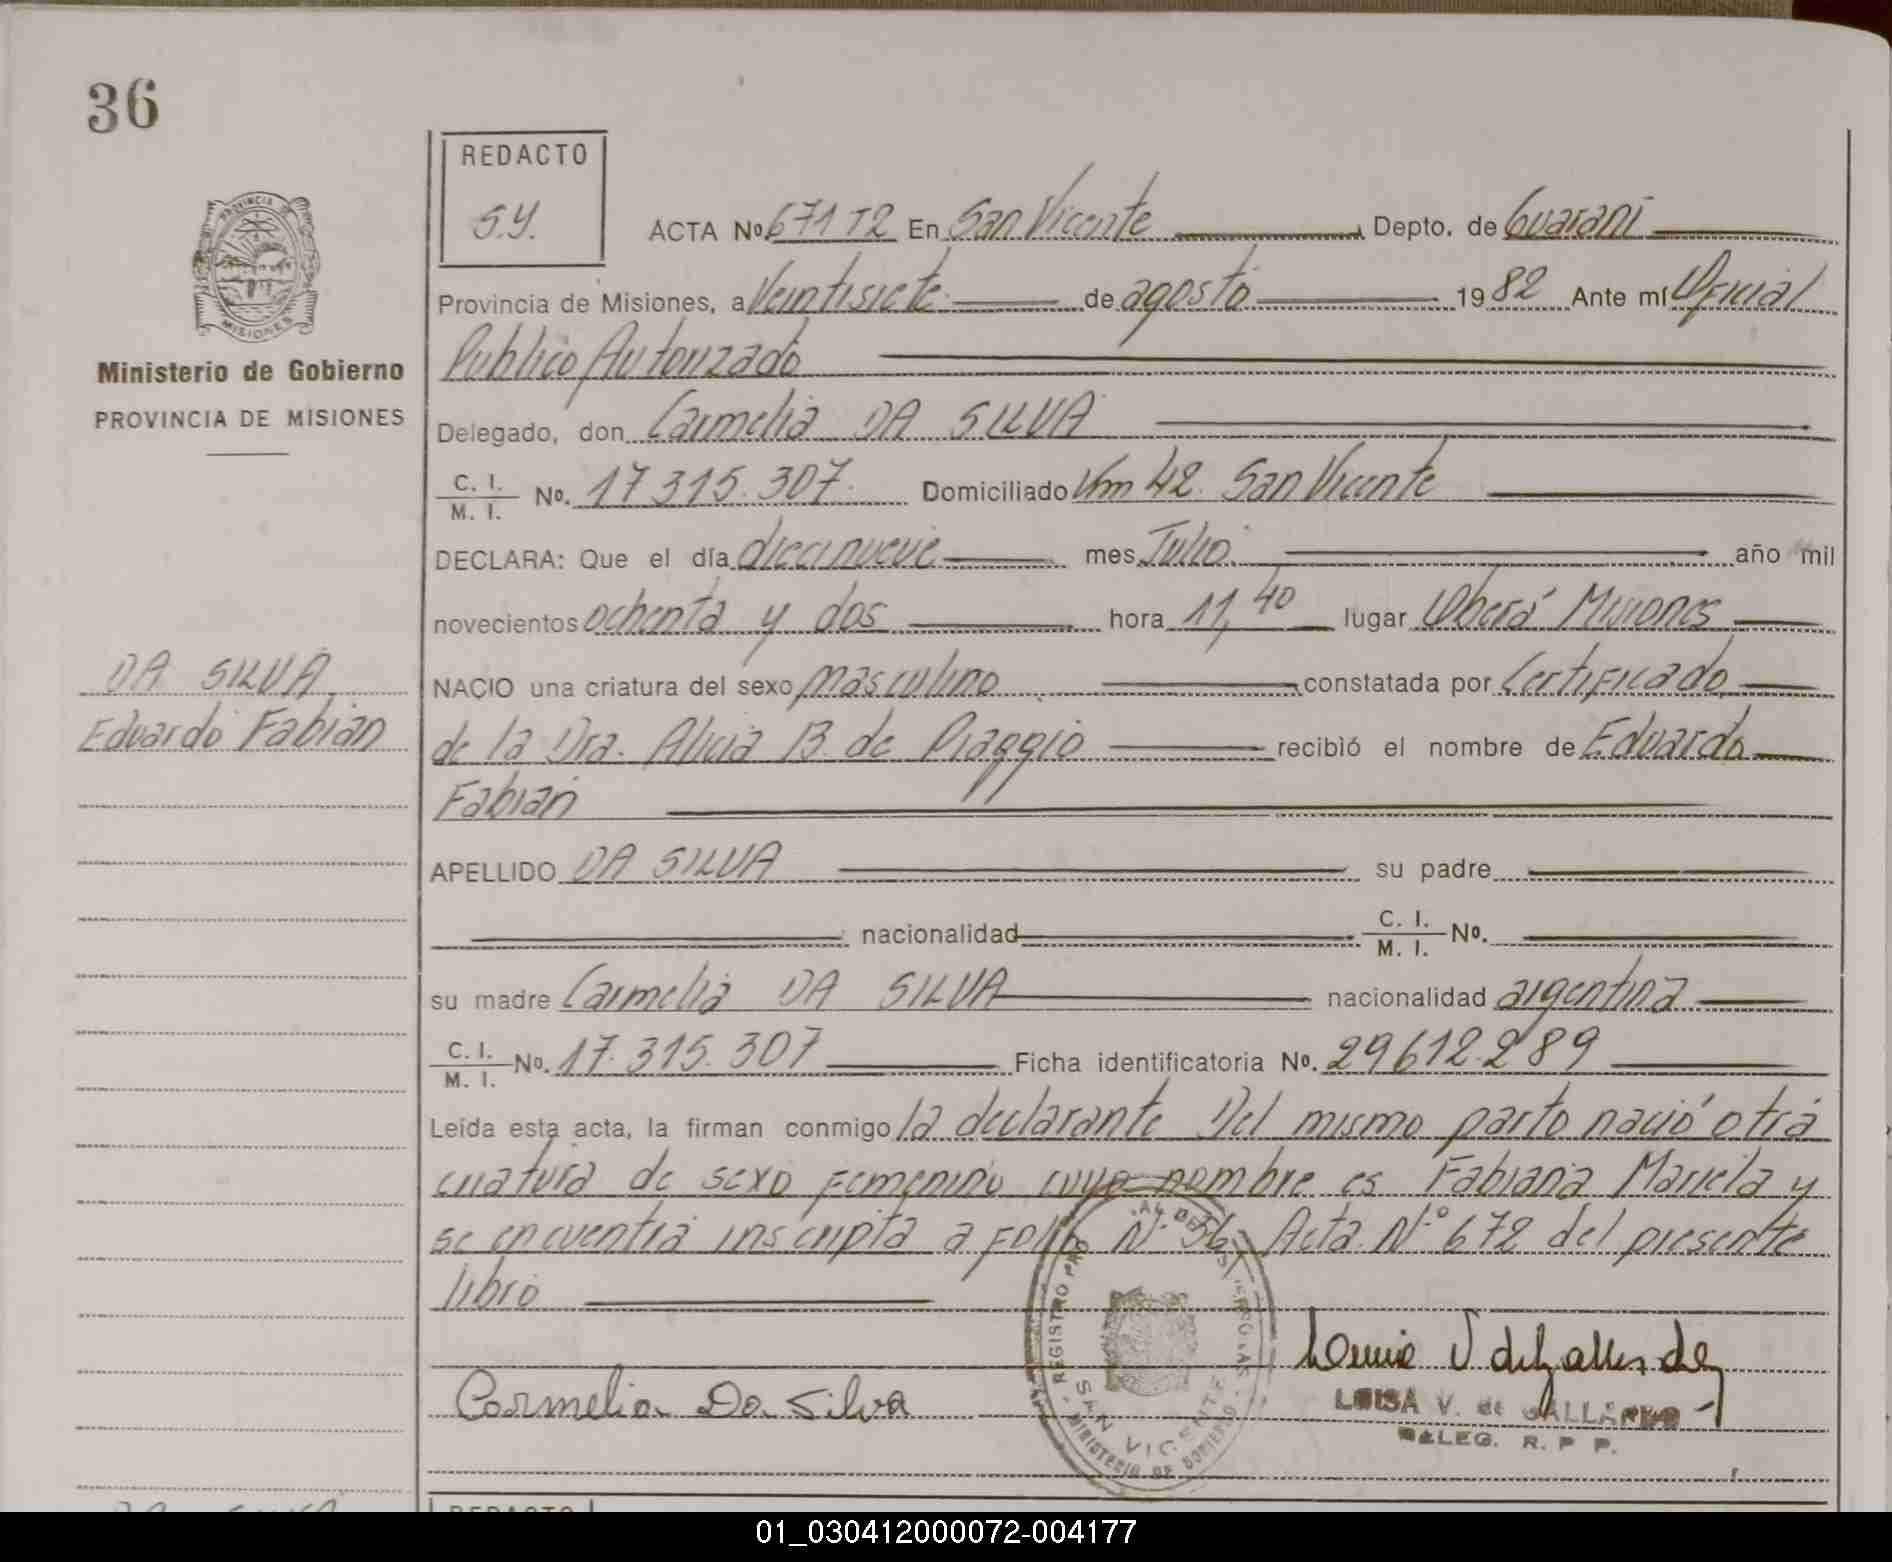 36
REDACTO
S.Y.
PROVINCIA DE
MISIONES
Ministerio de Gobierno
PROVINCIA DE MISIONES
ACTA No. 671 T2 En San Vicente Depto. de Guaraní
Provincia de Misiones, a Veintisiete de agosto 1982 Ante mí Oficial
Publico Autorizado
Delegado, don Carmelia DA SILVA
C. I. / M. I. No. 17 315.307. Domiciliado Km 42. San Vicente
DECLARA: Que el día diecinueve mes Julio. año mil
novecientos ochenta y dos hora 11,40 lugar Oberá Misiones
NACIO una criatura del sexo masculino constatada por Certificado
de la Dra. Alicia B de Piaggio recibió el nombre de Eduardo
Fabián
APELLIDO DA SILVA su padre
nacionalidad C. I. / M. I. No.
su madre Carmelia DA SILVA nacionalidad argentina
C. I. / M. I. No. 17.315.307 Ficha identificatoria No. 29612.289
Leída esta acta, la firman conmigo la declarante Del mismo parto nació otra
criatura de sexo femenino cuyo nombre es Fabiana Mariela y
se encuentra inscripta a folio Nº 36 Acta Nº 672 del presente
libro
DA SILVA
Eduardo Fabián
Carmelia Da Silva
REGISTRO
SAN VICENTE
MINISTERIO DE GOBIERNO
LUISA V. de GALLARDO
DELEG. R. P. P.
DA SILVA
REDACTO
01_030412000072-004177